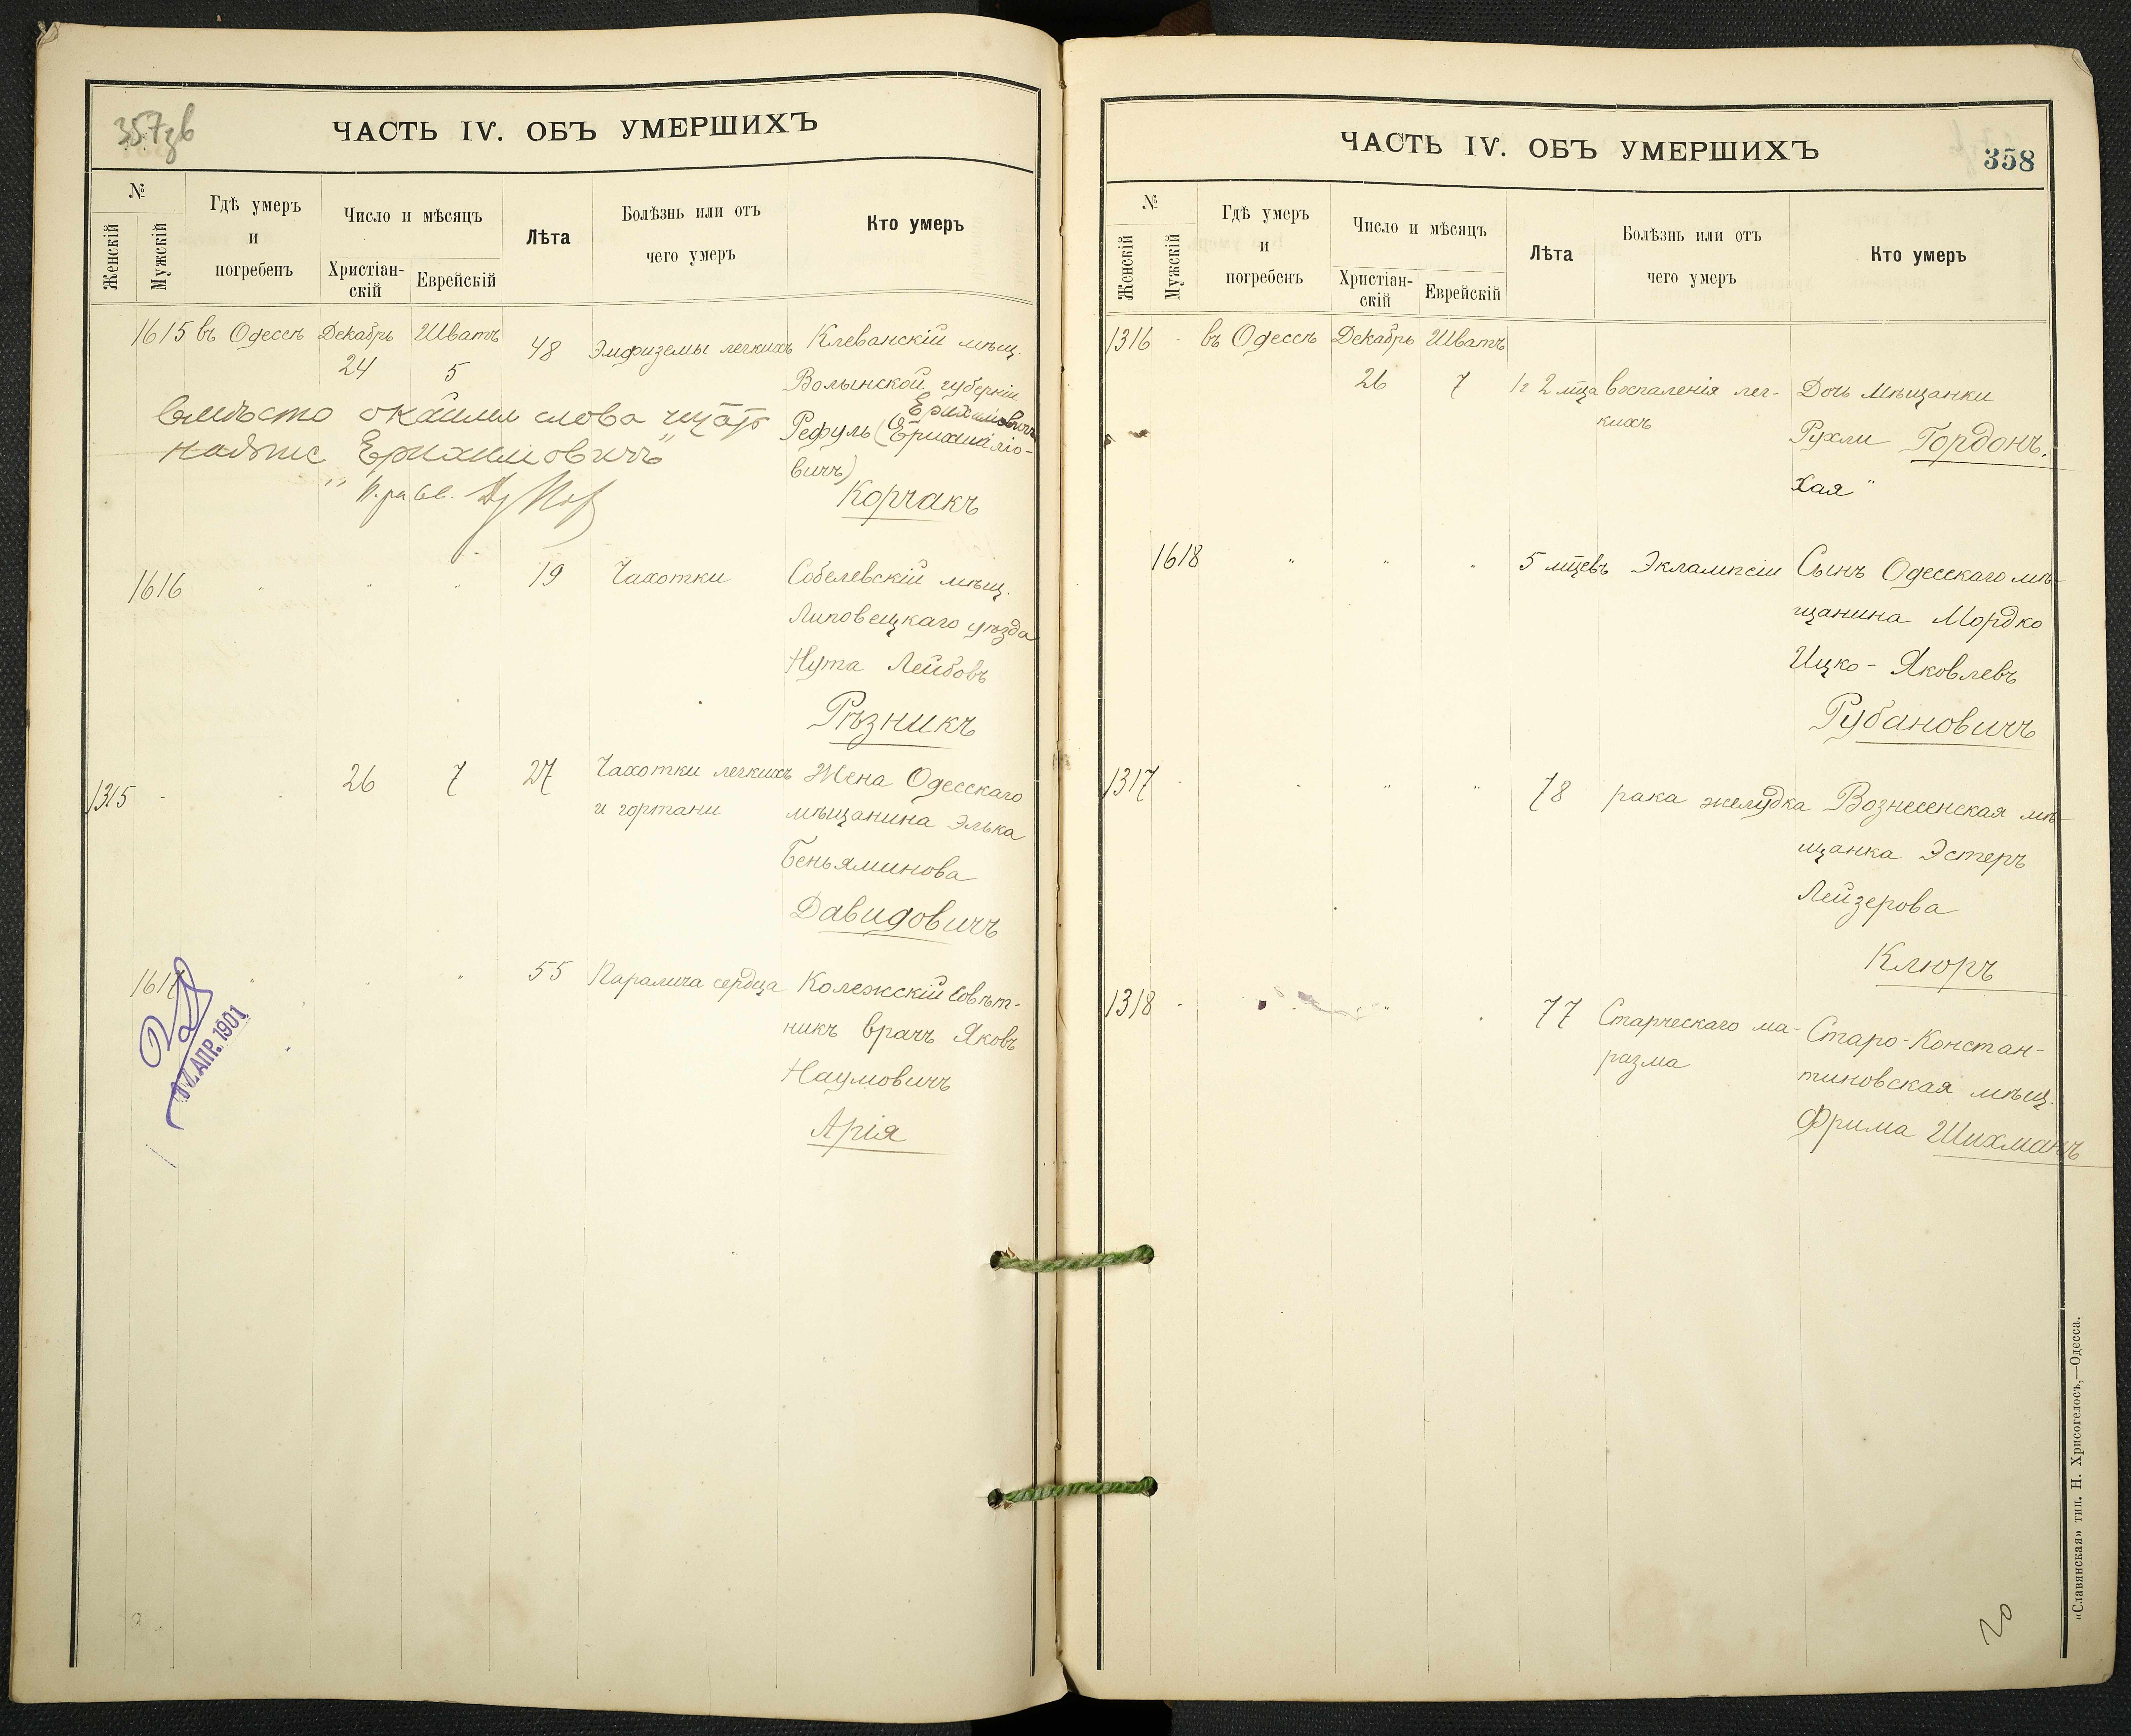 357зв
ЧАСТЬ IV. ОБЪ УМЕРШИХЪ
№
Женскій
Мужскій
Гдѣ умеръ
и
погребенъ
Число и мѣсяцъ
Христіан-
скій
Еврейскій
Лѣта
Болѣзнь или отъ
чего умеръ
Кто умеръ
1615 въ Одессѣ Декабрь Шватъ 48 Эмфиземы легкихъ Клеванскій мѣщ.
24 5 Волынской губерніи
Ерихимовичъ
Рефуль
вичъ)
Корчакъ
Вмѣсто слова
надпис Ерихимовичъ"
1616 " " " 19 Чахотки Собелевскій мѣщ.
Липовецкаго уѣзда
Нута Лейбовъ
Рѣзникъ
1315 - - 26 7 27 Чахотки легкихъ Жена Одесскаго
и гортани мѣщанина Элька
Беньяминова
Давидовичъ
1617 " " " 55 Паралича сердца Колежскій Совѣт-
никъ врачъ Яковъ
Наумовичъ
Арія
АПР. 1901
ЧАСТЬ IV. ОБЪ УМЕРШИХЪ
358
№
Женскій
Мужскій
Гдѣ умеръ
и
погребенъ
Число и мѣсяцъ
Христіан-
скій
Еврейскій
Лѣта
Болѣзнь или отъ
чего умеръ
Кто умеръ
1316 - въ Одессѣ Декабрь Шватъ
26 7 1г 2 мца воспаленія лег- Дочь Мѣщанки
кихъ
Рухли Гордонъ.
Хая"
1618 " " " 5 мцевъ Эклампсіи Сынъ Одесскаго мѣ-
щанина Мордко
Ицко-Яковлевъ
Рубановичъ
1317 - " " " 78 рака желудка Вознесенская мѣ-
щанка Эстеръ
Лейзерова
Клюръ
1318 - " " 77 Старческаго ма- Старо-Констан-
разма тиновская мѣщ.
Фрима Шихманъ
«Славянская» тип. Н. Хрисогелосъ,—Одесса.
20